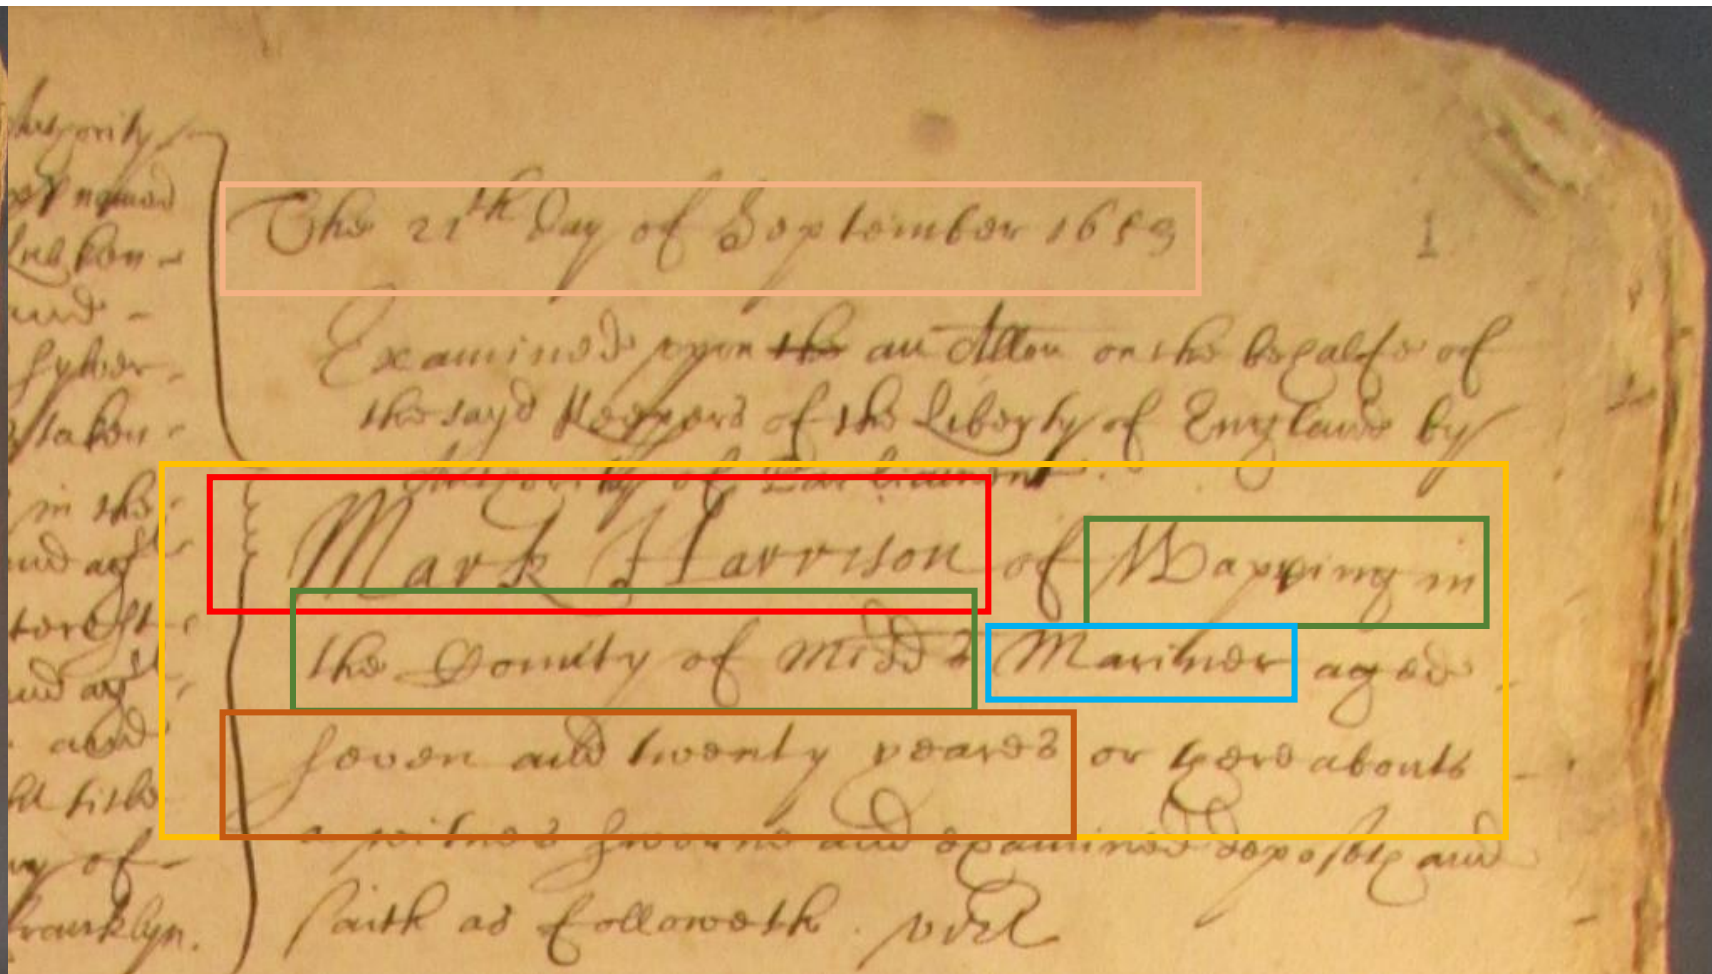 authority
named
und -
sylver -
taken -
in the
and agt
and agt
and
title
of -
Francklyn.
The 21th day of September 1653
1
Examined upon the an Allon on the behalfe of
the sayd Keepers of the Liberty of England by
authority of Parliament.
Mark Harrison of Wapping in
the County of Midd Mariner aged
seven and twenty yeares or there abouts
a witnes sworne and examined deposeth and
saith as followeth. vizt